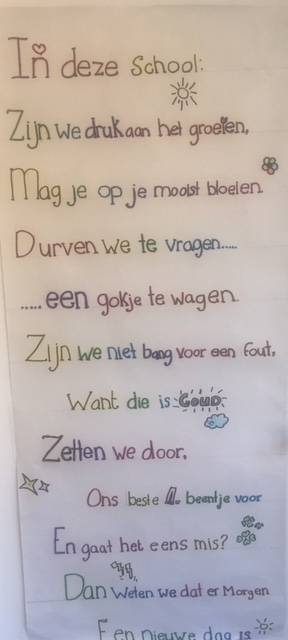 In deze School:
Zijn we druk aan het groeien,
Mag je op je mooist bloeien.
Durven we te vragen.....
.....een gokje te wagen.
Zijn we niet bang voor een fout,
Want die is GOUD
Zetten we door,
Ons beste beentje voor
En gaat het eens mis?
Dan Weten we dat er Morgen
Een nieuwe dag is